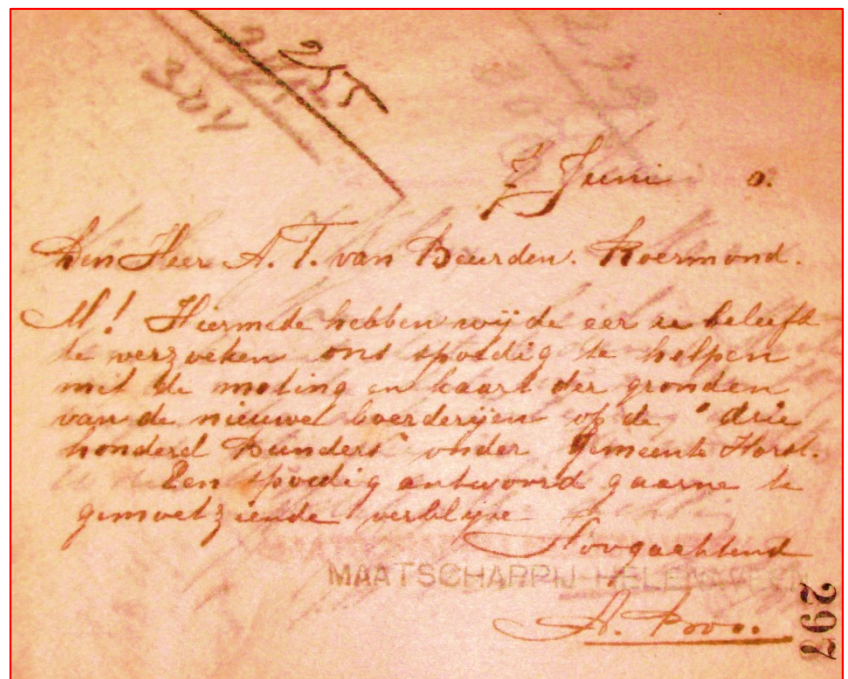 255
304
7 Juni 0.
Den Heer A. T. van Beurden. Roermond.
M! Hiermede hebben wij de eer u beleeft
te verzoeken ons spoedig te helpen
met de meting en kaart der gronden
van de nieuwe boerderijen op de "drie
honderd Bunders" onder Gemeente Horst.
Een spoedig antwoord gaarne te
gemoetziende verblijve
Hoogachtend
MAATSCHAPPIJ HELENAVEEN
A. Bos.
297